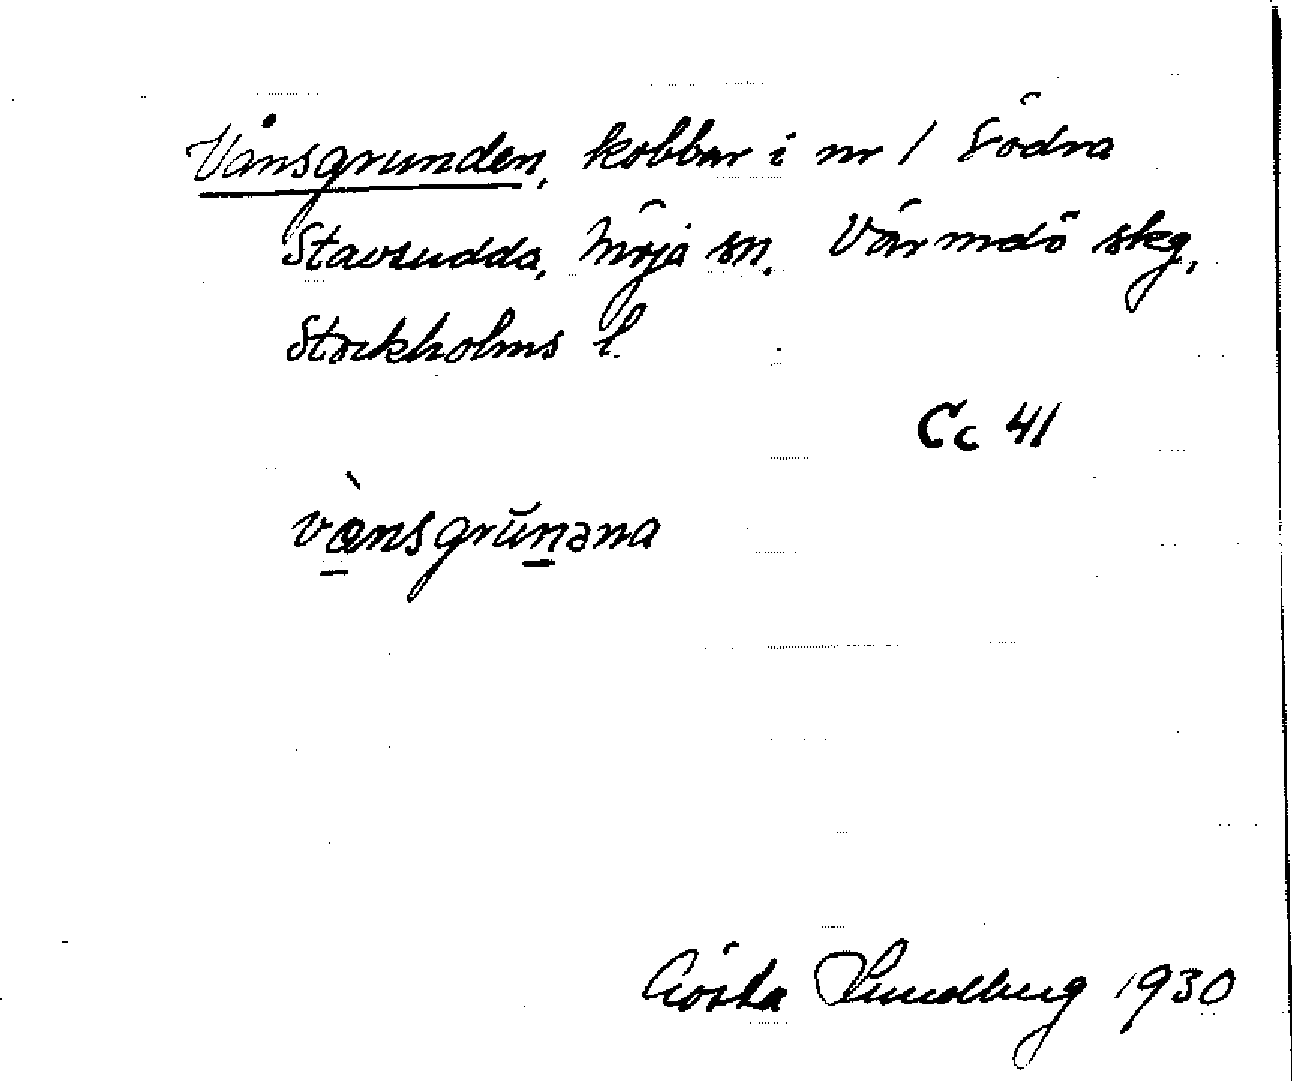 Vånsgrunden, kobbar i nr 1 Södra
Stavsudda, Möja sn, Värmdö skg,
Stockholms l.
Cc 41
Gösta Sundberg 1930